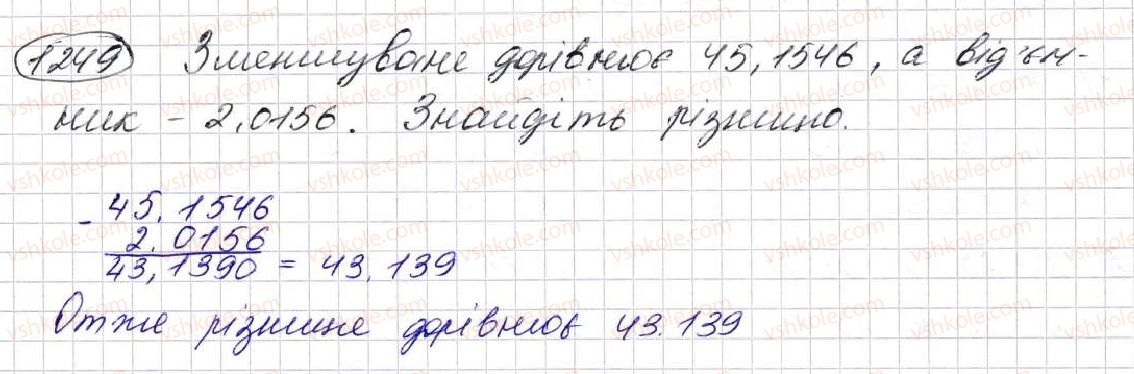 1249 Зменшуване дорівнює 45,1546, а від'єм-
ник - 2,0156. Знайдіть різницю.
- 45,1546
2.0156
43,1390 = 43.139
Отже різнице дорівнює 43.139